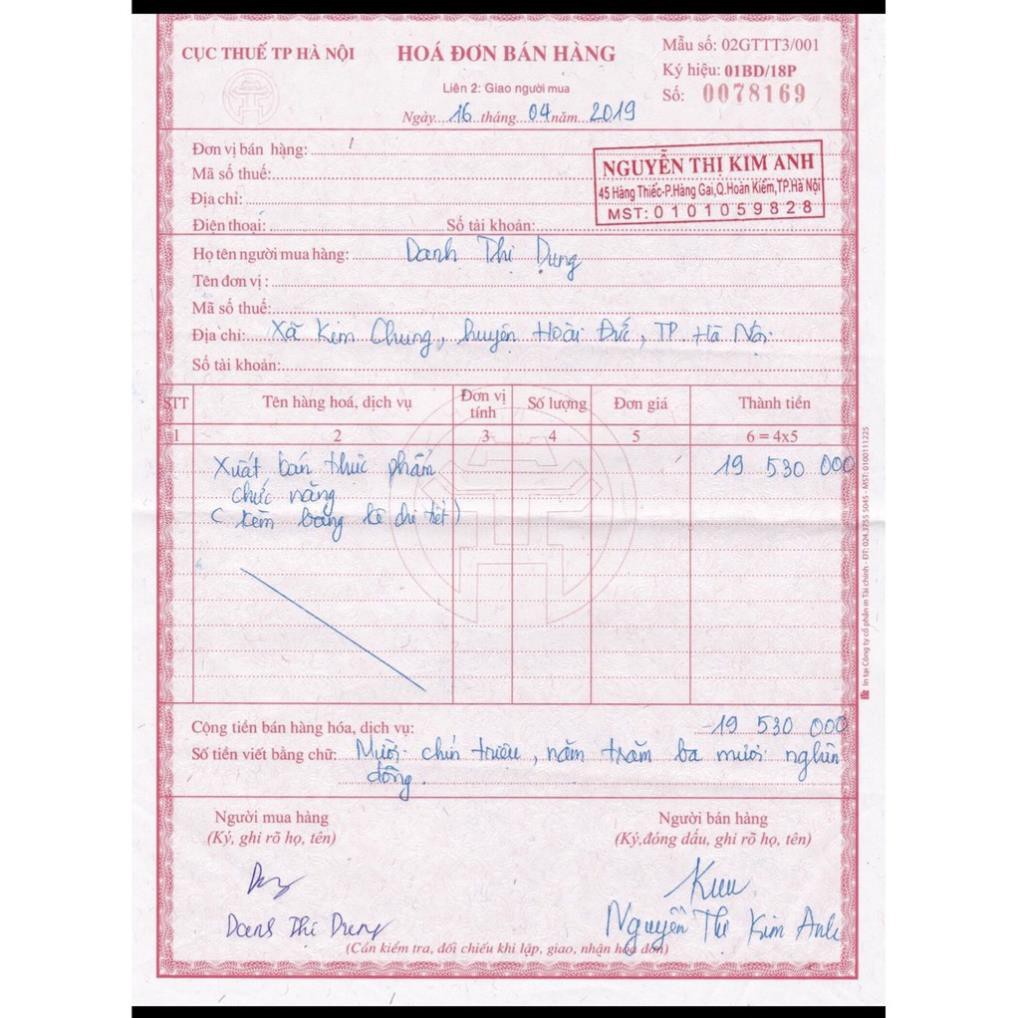 CỤC THUẾ TP HÀ NỘI
HOÁ ĐƠN BÁN HÀNG
Liên 2: Giao người mua
Ngày...16...tháng...04...năm...2019
Mẫu số: 02GTTT3/001
Ký hiệu: 01BD/18P
Số: 0078169
Đơn vị bán hàng:
Mã số thuế:
Địa chỉ:
Điện thoại: Số tài khoản:
NGUYỄN THỊ KIM ANH
45 Hàng Thiếc-P.Hàng Gai,Q.Hoàn Kiếm,TP.Hà Nội
MST: 0101059828
Họ tên người mua hàng: Danh Thị Dung
Tên đơn vị:
Mã số thuế:
Địa chỉ: Xã Kim Chung, huyện Hoài Đức, TP. Hà Nội
Số tài khoản:
STT Tên hàng hoá, dịch vụ Đơn vị tính Số lượng Đơn giá Thành tiền
1 2 3 4 5 6 = 4x5
Xuất bán thực phẩm 19 530 000
chức năng
( kèm bảng kê chi tiết )
Cộng tiền bán hàng hóa, dịch vụ: 19 530 000
Số tiền viết bằng chữ: Mười chín triệu, năm trăm ba mươi nghìn
đồng.
Người mua hàng Người bán hàng
(Ký, ghi rõ họ, tên) (Ký,đóng dấu, ghi rõ họ, tên)
Danh Thị Dung Nguyễn Thị Kim Anh
(Cần kiểm tra, đối chiếu khi lập, giao, nhận hóa đơn)
In tại Công ty cổ phần in Tài chính - ĐT: 024.3755 5045 - MST: 0100111225